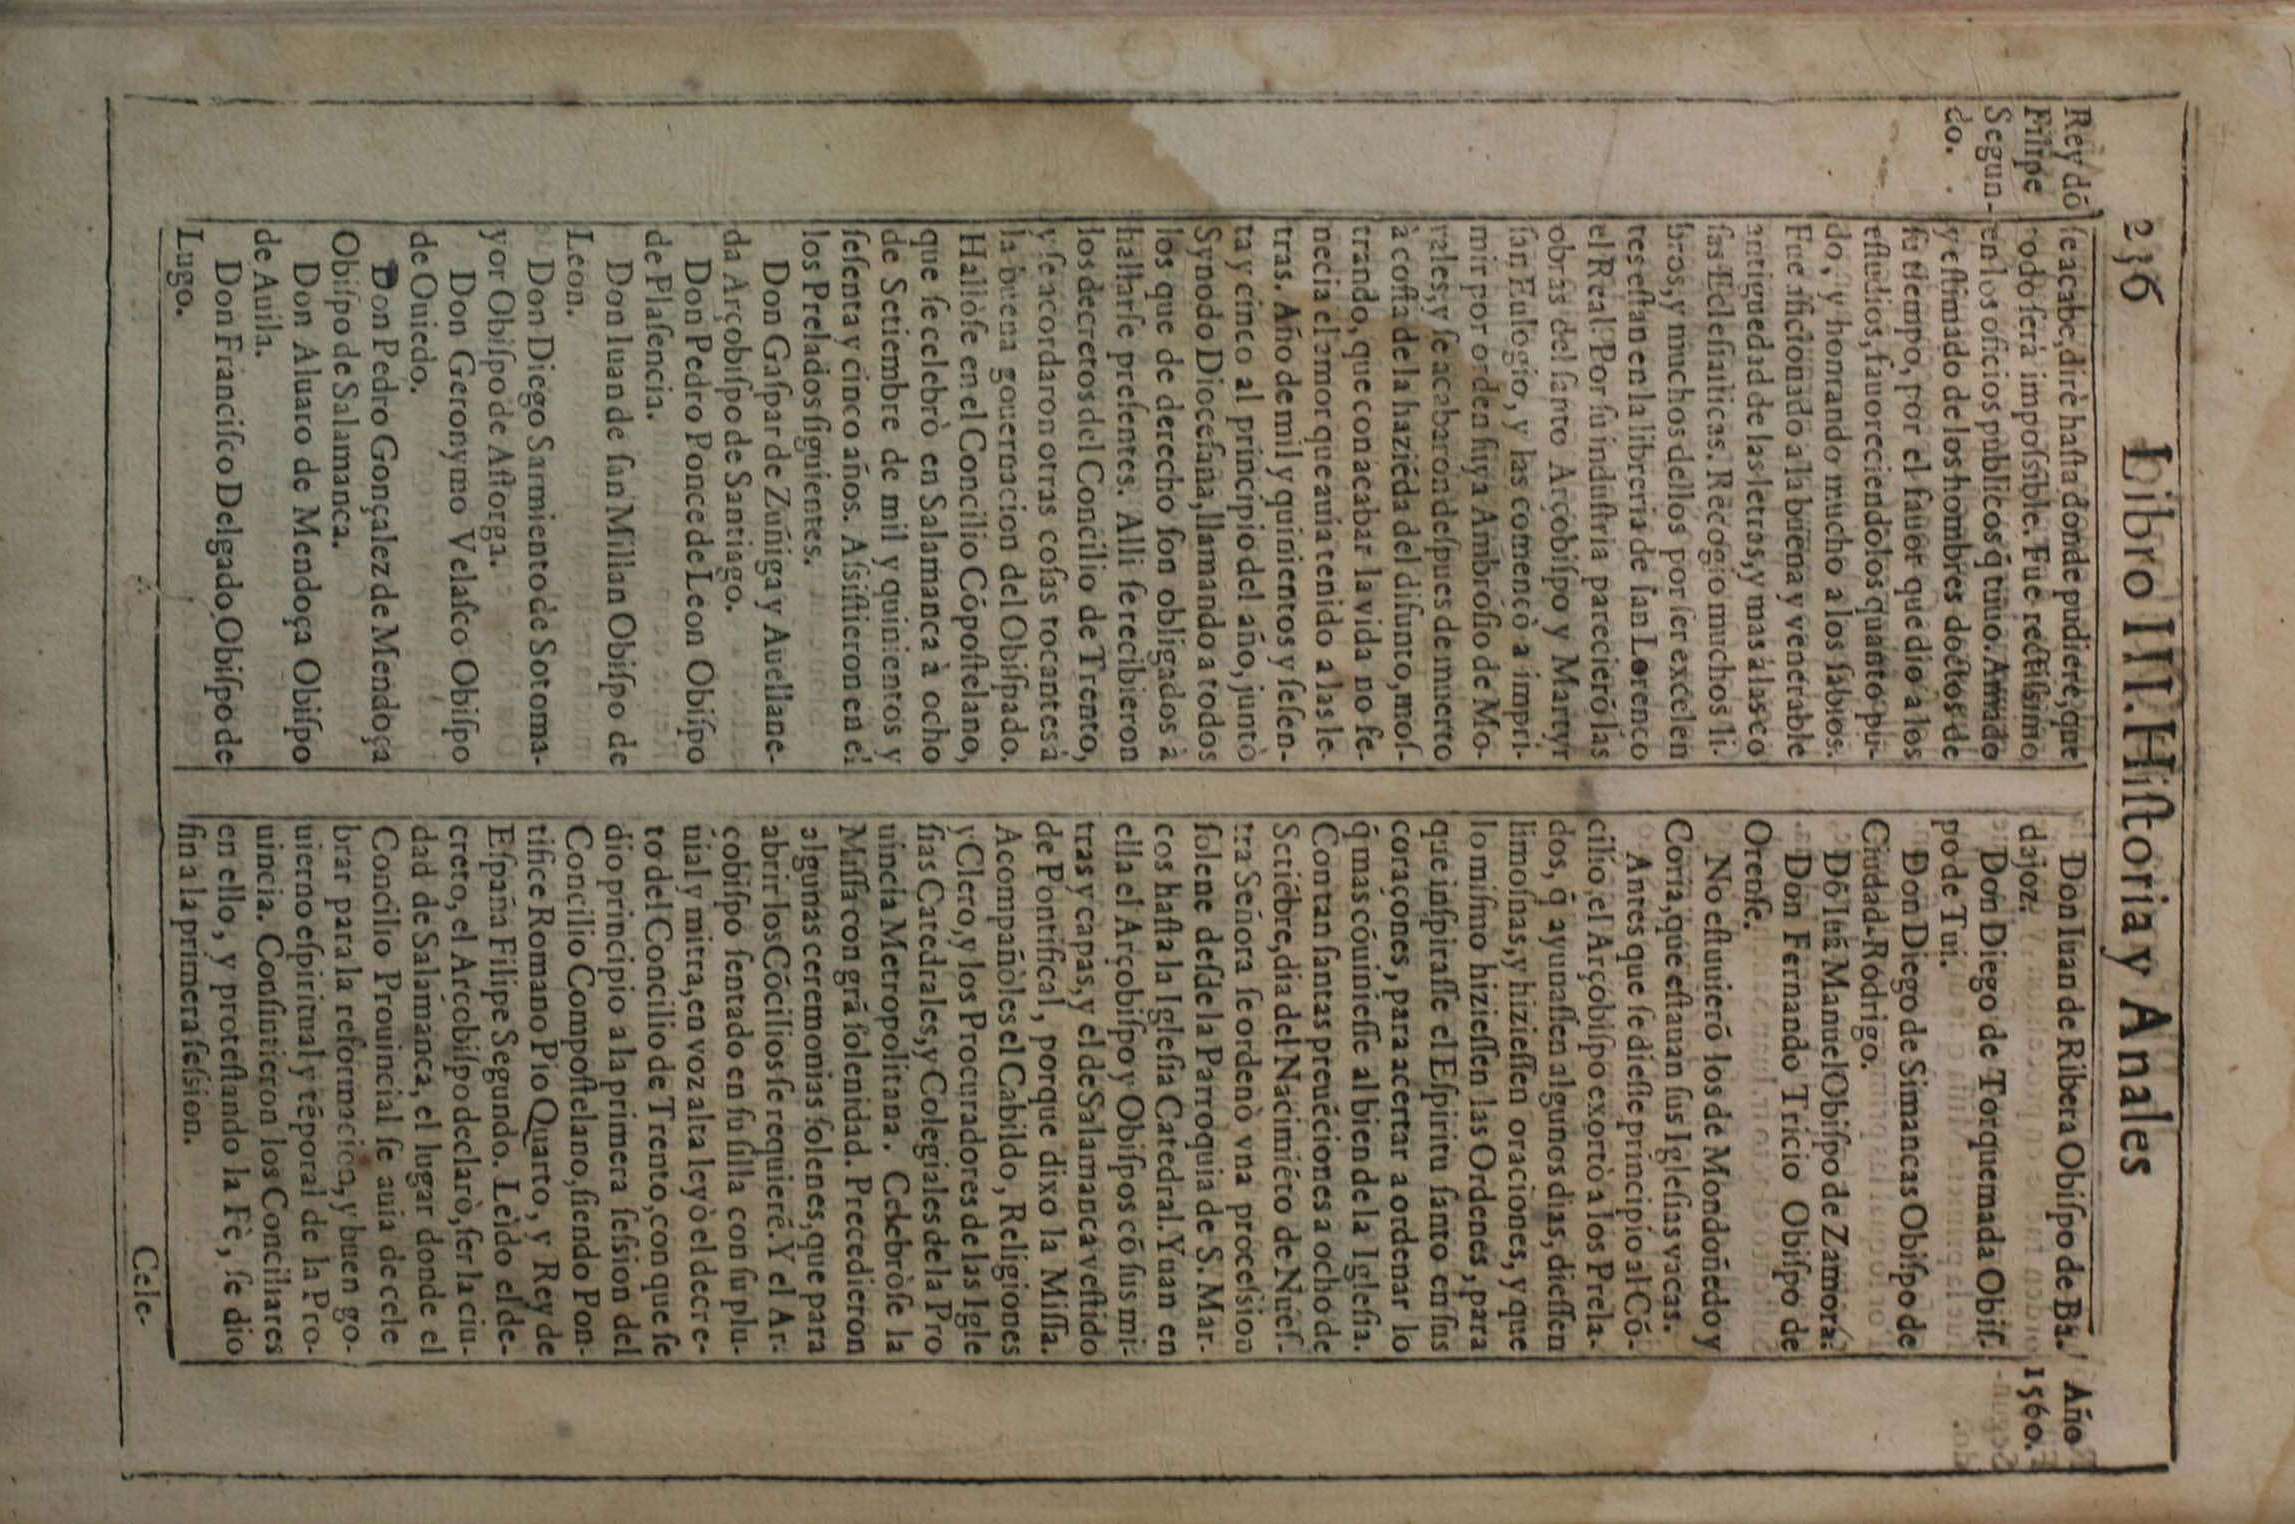 236 Libro III. Hiſtoria y Anales
Rey dõ
Filipe
Segun-
do.
ſe acabe, dirè haſta donde pudiere, que
todo ſerà impoſsible. Fue rectiſsimo
en los oficios publicos q̃ tuuo. Amado
y eſtimado de los hombres doctos de
ſu tiempo, por el fauor que dio a los
eſtudios, fauoreciendolos quanto pu-
do, y honrando mucho a los ſabios.
Fue aficionado a la buena y venerable
antiguedad de las letras, y mas a las co
ſas Ecleſiaſticas. Recogio muchos li-
bros, y muchos dellos por ſer excelen
tes eſtan en la libreria de ſan Lorenco
el Real. Por ſu induſtria parecierõ las
obras del ſanto Arçobiſpo y Martyr
ſan Eulogio, y las comencò a impri-
mir por orden ſuya Ambroſio de Mo-
rales, y ſe acabaron deſpues de muerto
à coſta de la haziẽda del difunto, moſ-
trando, que con acabar la vida no fe-
necia el amor que auia tenido a las le-
tras. Año de mil y quinientos y ſeſen-
ta y cinco al principio del año, juntò
Synodo Dioceſana, llamando a todos
los que de derecho ſon obligados à
hallarſe preſentes. Alli ſe recibieron
los decretos del Concilio de Trento,
y ſe acordaron otras coſas tocantes à
la buena gouernacion del Obiſpado.
Hallòſe en el Concilio Cõpoſtelano,
que ſe celebrò en Salamanca à ocho
de Setiembre de mil y quinientos y
ſeſenta y cinco años. Aſsiſtieron en el
los Prelados ſiguientes.
Don Gaſpar de Zuñiga y Auellane-
da Arçobiſpo de Santiago.
Don Pedro Ponce de Leon Obiſpo
de Plaſencia.
Don Iuan de ſan Millan Obiſpo de
Leon.
Don Diego Sarmiento de Sotoma-
yor Obiſpo de Aſtorga.
Don Geronymo Velaſco Obiſpo
de Ouiedo.
Don Pedro Gonçalez de Mendoça
Obiſpo de Salamanca.
Don Aluaro de Mendoça Obiſpo
de Auila.
Don Franciſco Delgado, Obiſpo de
Lugo.
Don Iuan de Ribera Obiſpo de Ba-
dajoz.
Don Diego de Torquemada Obiſ-
po de Tui.
Don Diego de Simancas Obiſpo de
Ciudad-Rodrigo.
Dõ Iuã Manuel Obiſpo de Zamora.
Don Fernando Tricio Obiſpo de
Orenſe.
No eſtuuierõ los de Mondoñedo y
Coria, que eſtauan ſus Igleſias vacas.
Antes que ſe dieſſe principio al Cõ-
cilio, el Arçobiſpo exortò a los Prela-
dos, q̃ ayunaſſen algunos dias, dieſſen
limoſnas, y hizieſſen oraciones, y que
lo miſmo hizieſſen las Ordenes, para
que inſpiraſſe el Eſpiritu ſanto en ſus
coraçones, para acertar a ordenar lo
q̃ mas cõuinieſſe al bien de la Igleſia.
Con tan ſantas preuẽciones a ocho de
Setiẽbre, dia del Nacimiẽto de Nueſ-
tra Señora ſe ordenò vna proceſsion
ſolene deſde la Parroquia de S. Mar-
cos haſta la Igleſia Catedral. Yuan en
ella el Arçobiſpo y Obiſpos cõ ſus mi-
tras y capas, y el de Salamanca veſtido
de Pontifical, porque dixo la Miſſa.
Acompañòles el Cabildo, Religiones
y Clero, y los Procuradores de las Igle
ſias Catedrales, y Colegiales de la Pro
uincia Metropolitana. Celebròſe la
Miſſa con grã ſolenidad. Precedieron
algunas ceremonias ſolenes, que para
abrir los Cõcilios ſe requierẽ. Y el Ar-
cobiſpo ſentado en ſu ſilla con ſu plu-
uial y mitra, en voz alta leyò el decre-
to del Concilio de Trento, con que ſe
dio principio a la primera ſeſsion del
Concilio Compoſtelano, ſiendo Pon-
tifice Romano Pio Quarto, y Rey de
Eſpaña Filipe Segundo. Leido el de-
creto, el Arcobiſpo declarò, ſer la ciu-
dad de Salamanca, el lugar donde el
Concilio Prouincial ſe auia de cele
brar para la reformacion, y buen go-
uierno eſpiritual y tẽporal de la Pro-
uincia. Conſintieron los Conciliares
en ello, y proteſtando la Fè, ſe dio
fin a la primera ſeſsion.
Año
1560.
Cele-